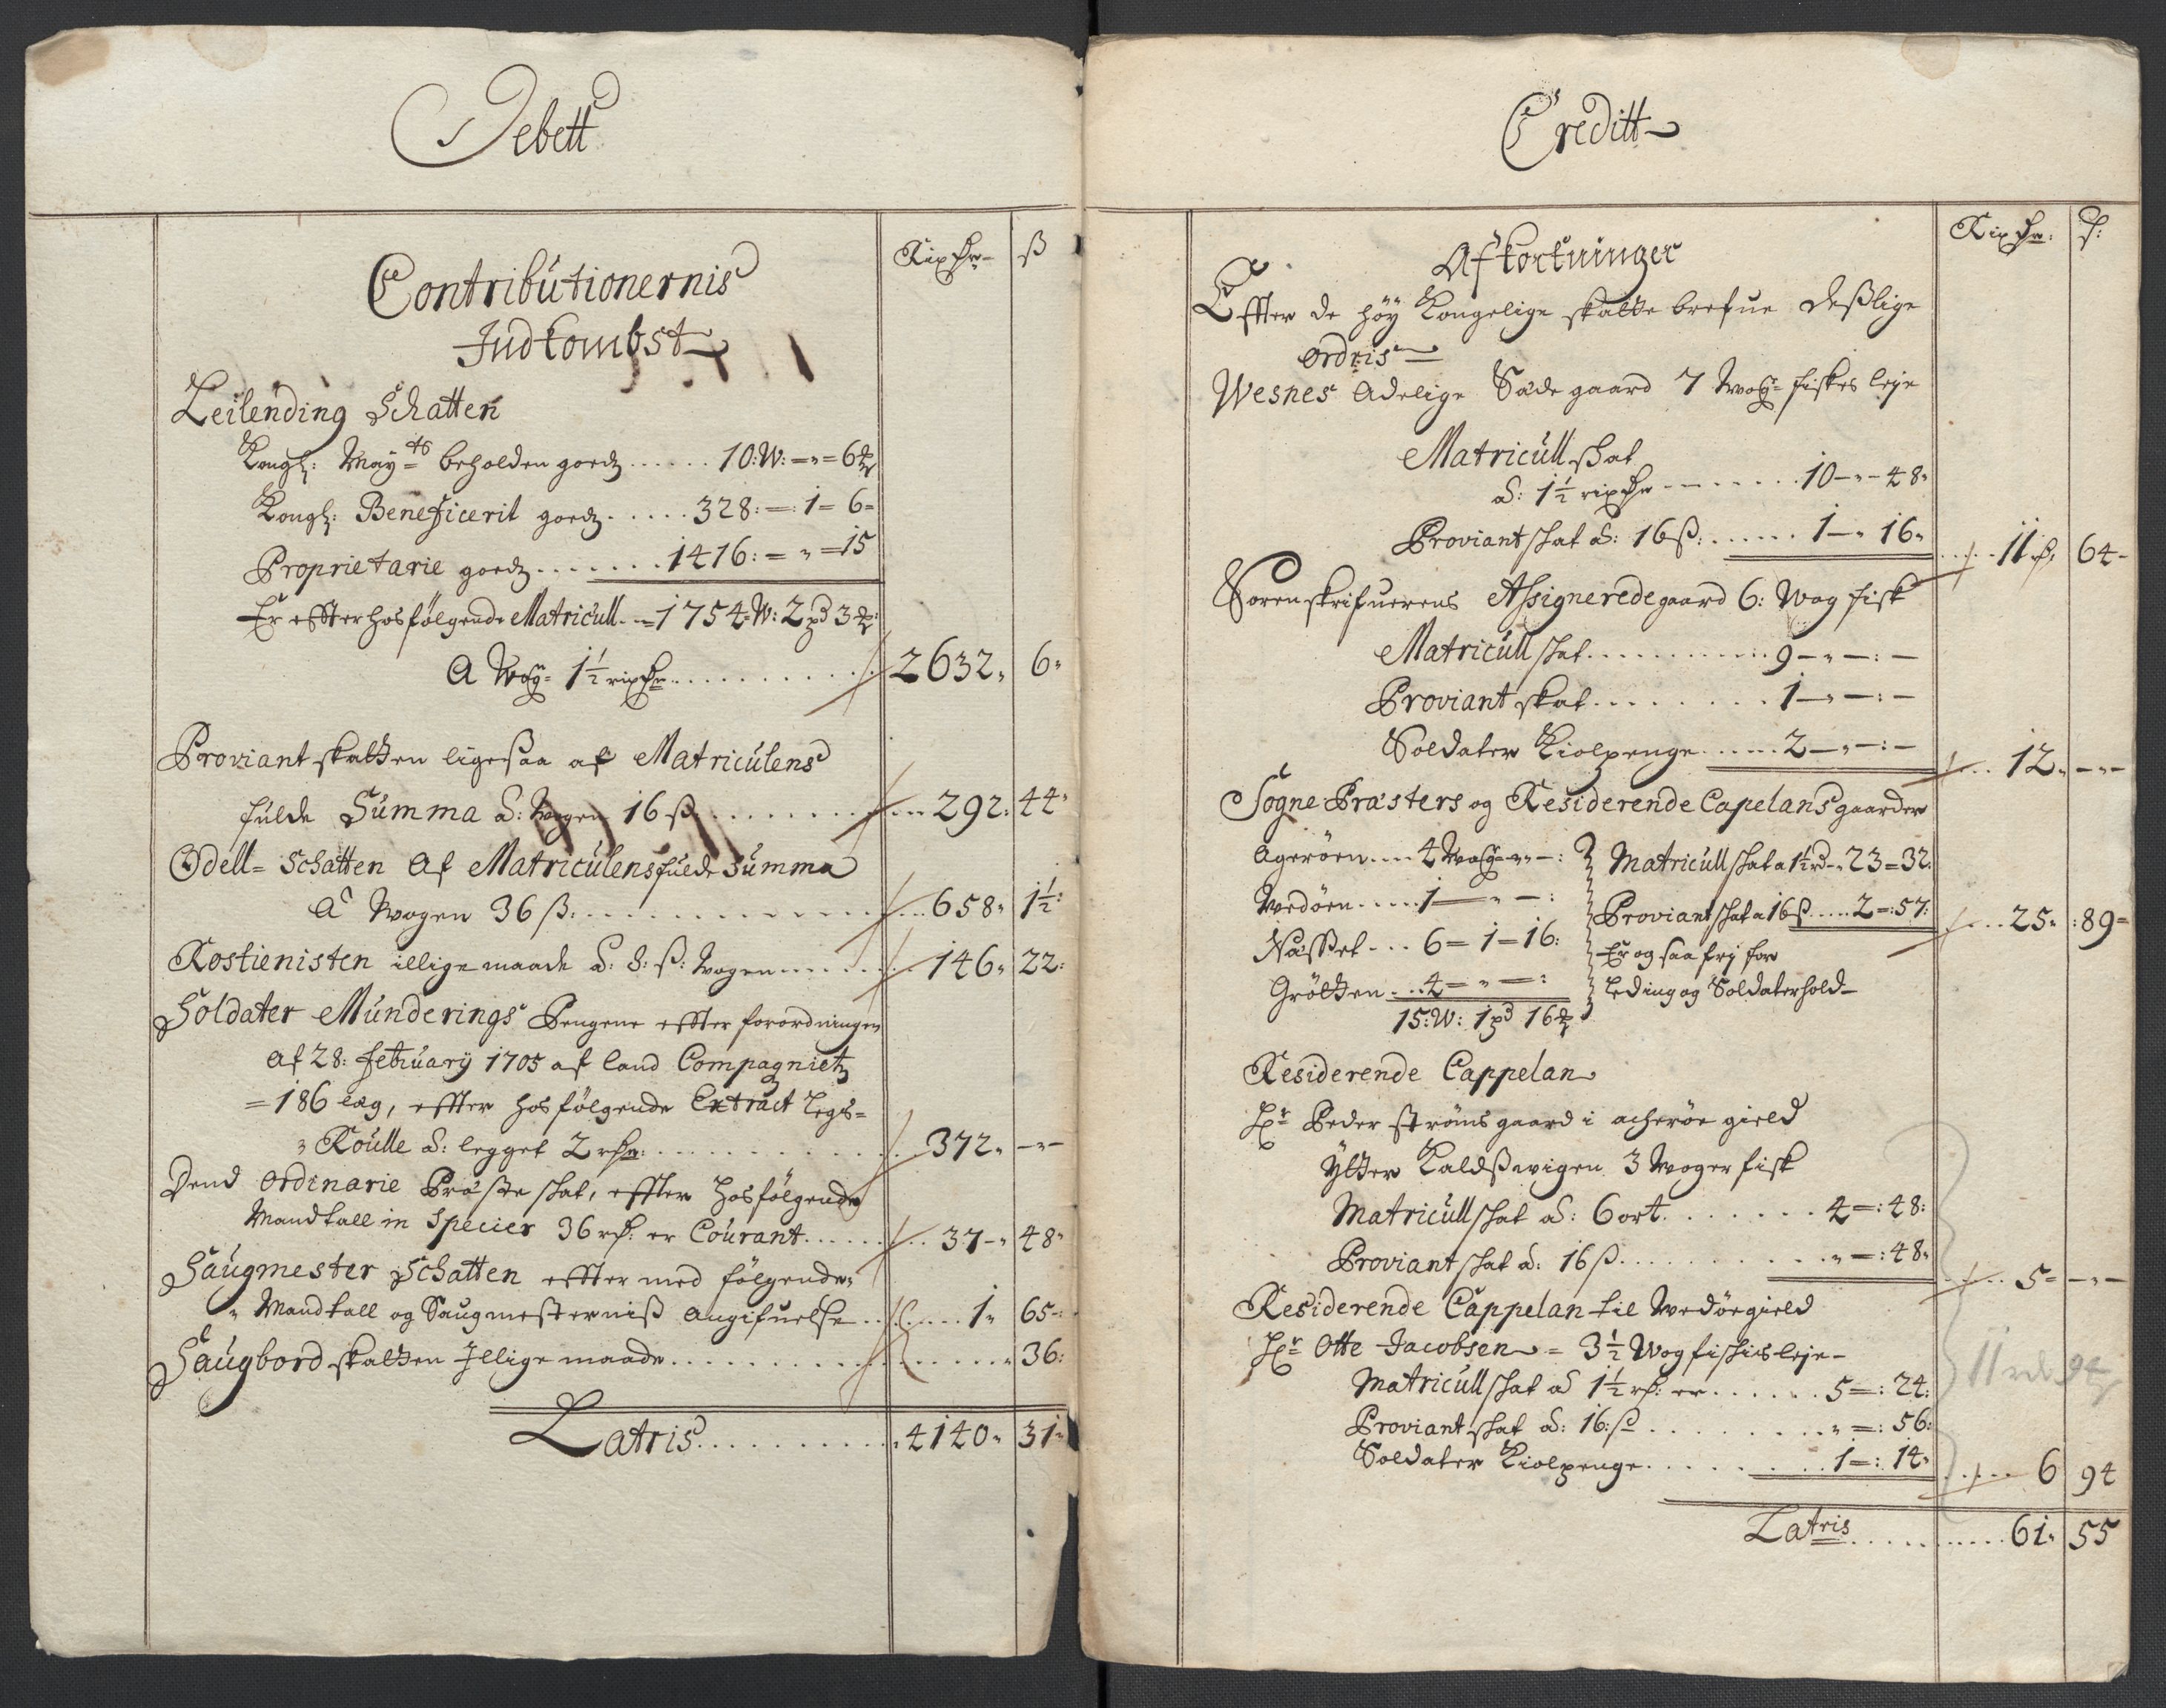 Debett
Rixdr ß
Contributionernis
Indkombst
Leilending Schatten
Kongl: May=ts beholden goedz ...... 10: W: -"- 6 ℔
Kongl: Beneficerit goedz ..... 328: - : 1 - 6 -
Proprietarie goedz ....... 1416: - " - 15
Er effter hosfølgende Matricull - 1754 W: 2 pd 3 ℔:
A Wog 1½ rixdr .......... 2632" 6"
Proviant skatten ligesaa af Matriculens
fulde Summa á: Wogen 16 ß ......... 292: 44"
Odell= Schatten Af Matriculens fulde Summa
á Wogen 36 ß: ............. 658" 1½:
Rostienisten illigemaade á: 8: ß: Wogen ....... 146" 22:
Soldater Munderings Pengene effter forordningen
Af 28: February 1705 af land Compagnietz
= 186 læg, effter hosfølgende Extract Legs=
" Roulle á: legget 2 rdr: ............ 372" - " -
Dend Ordinarie Præste skat, effter hosfølgende
Mandtall in Specier 36 rd: er Courant ....... 37 - " 48"
Saugmester Schatten effter med følgende
" Mandtall og Saugmesterniß Angifuelse ....... 1" 65 -
Saugbord skatten Jllige maade ............... " 36:
Latris .......... 4140" 31"
Creditt
Rixdr: ß:
Afkortninger
Effter de høy Kongelige skatte brefue deßlige
ordris
Wesnes Adelige Sæde gaard 7 Wog fiskes leje
Matricull skat
á: 1½ rixdr ........ 10 - " - 48"
Proviant skat á: 16 ß: ...... 1 - " 16"
..... 11 " 64 -
Sorenskrifuerens Assignerede gaard 6: Wog fisk
Matricull skat ............ 9 - " - : -
Proviant skat ........ 1 - " - : -
Soldater Kiolpenge ...... 2 - " - : -
... 12" - " -
Sogne Præsters og Residerende Capelans gaarder
Agerøen .... 4 Wog - " - :
Matricull skat a 1½ rd - 23 = 32:
Wedøen ..... 1 - " - :
Proviant skat a 16 ß ..... 2 = : 57:
.... 25" : 89 =
Næsset ... 6 = 1 = 16:
Er og saa frj for
Grøtten ... 4 = " = :
Leding og Soldaterhold -
15: W: 1 pd 16 ℔
Residerende Cappelan
Hr Peder strøms gaard i acherøe gield
Ytter Kaldßwigen 3 Woger fisk
Matricull skat á: 6 ort ....... 4 = : 48:
Proviant skat á: 16 ß ......... " = : 48"
.... 5 = - " -
Residerende Cappelan til Wedøe gield
Hr Otte Jacobsen = 3½ Wog fiskis leje -
Matricull skat á 1½ rd: er ...... 5 = : 24:
Proviant skat á: 16: ß ........ " = : 56:
Soldater Kiolpenge ........ 1 = : 14"
..... 6 94
11 rd 94 ß
Latris .......... 61" 55